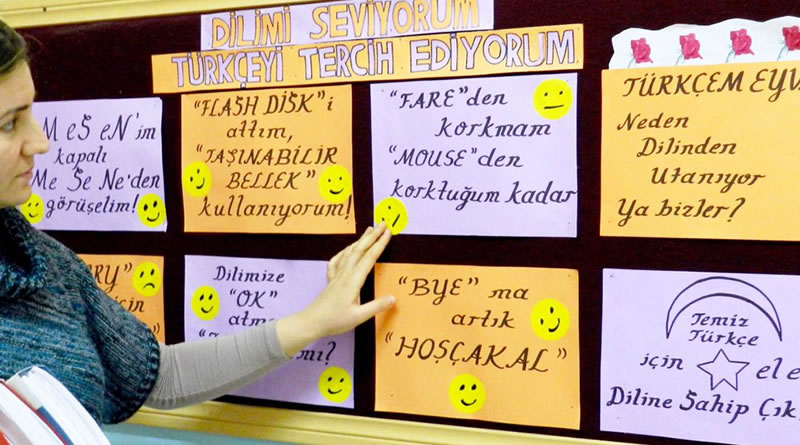 DİLİMİ SEVİYORUM
TÜRKÇEYİ TERCİH EDİYORUM
MeSeN'im
kapalı
Me Se Ne'den
görüşelim!
"FLASH DİSK"i
attım,
"TAŞINABİLİR
BELLEK"
kullanıyorum!
"FARE"den
korkmam
"MOUSE"den
korktuğum kadar
TÜRKÇEM
Neden
Dilinden
Utanıyor
Ya bizler?
için
Dilimize
"OK"
"BYE" ma
artık
"HOŞÇAKAL"
Temiz
Türkçe
için el ele
Diline Sahip Çık